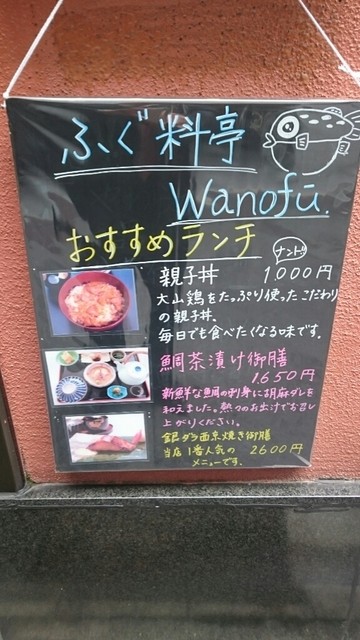 ふぐ料亭
Wanofū.
おすすめランチ
ナント!!
親子丼 1.000円
大山鶏をたっぷり使ったこだわり
の親子丼。
毎日でも食べたくなる味です。
鯛茶漬け御膳
1650円
新鮮な鯛の刺身に胡麻ダレを
和えました。熱々のお出汁でお召し
上がりください。
銀ダラ西京焼き御膳
当店1番人気の 2600円
メニューです。